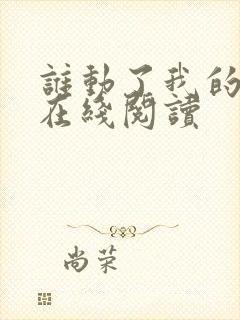 誰動了我的
在綫閱讀
尚荣